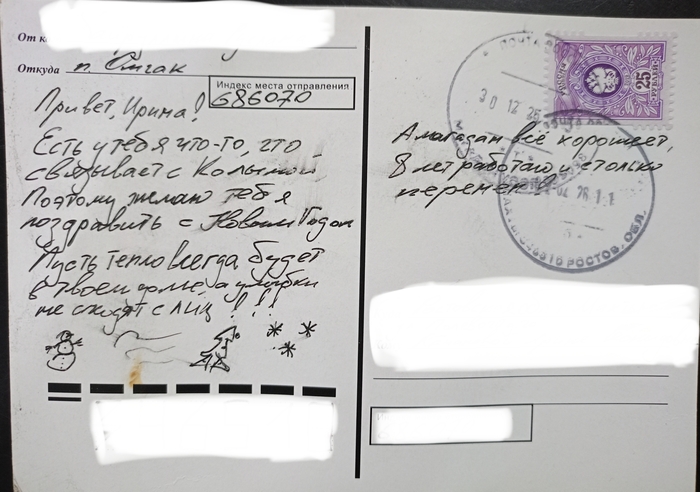 От к
Откуда п. Омчак
Индекс места отправления
686070
Привет, Ирина!
Есть у тебя что-то, что
связывает с Колымой.
Поэтому желаю тебя
поздравить с Новым Годом
Пусть тепло всегда будет
в твоем доме, а улыбки
не сходят с лиц!!!
ПОЧТА
РОССИЯ
25
30 12 25
А Магадан всё хорошеет,
8 лет работаю и столько
перемен
РОСТОВ. ОБЛ.